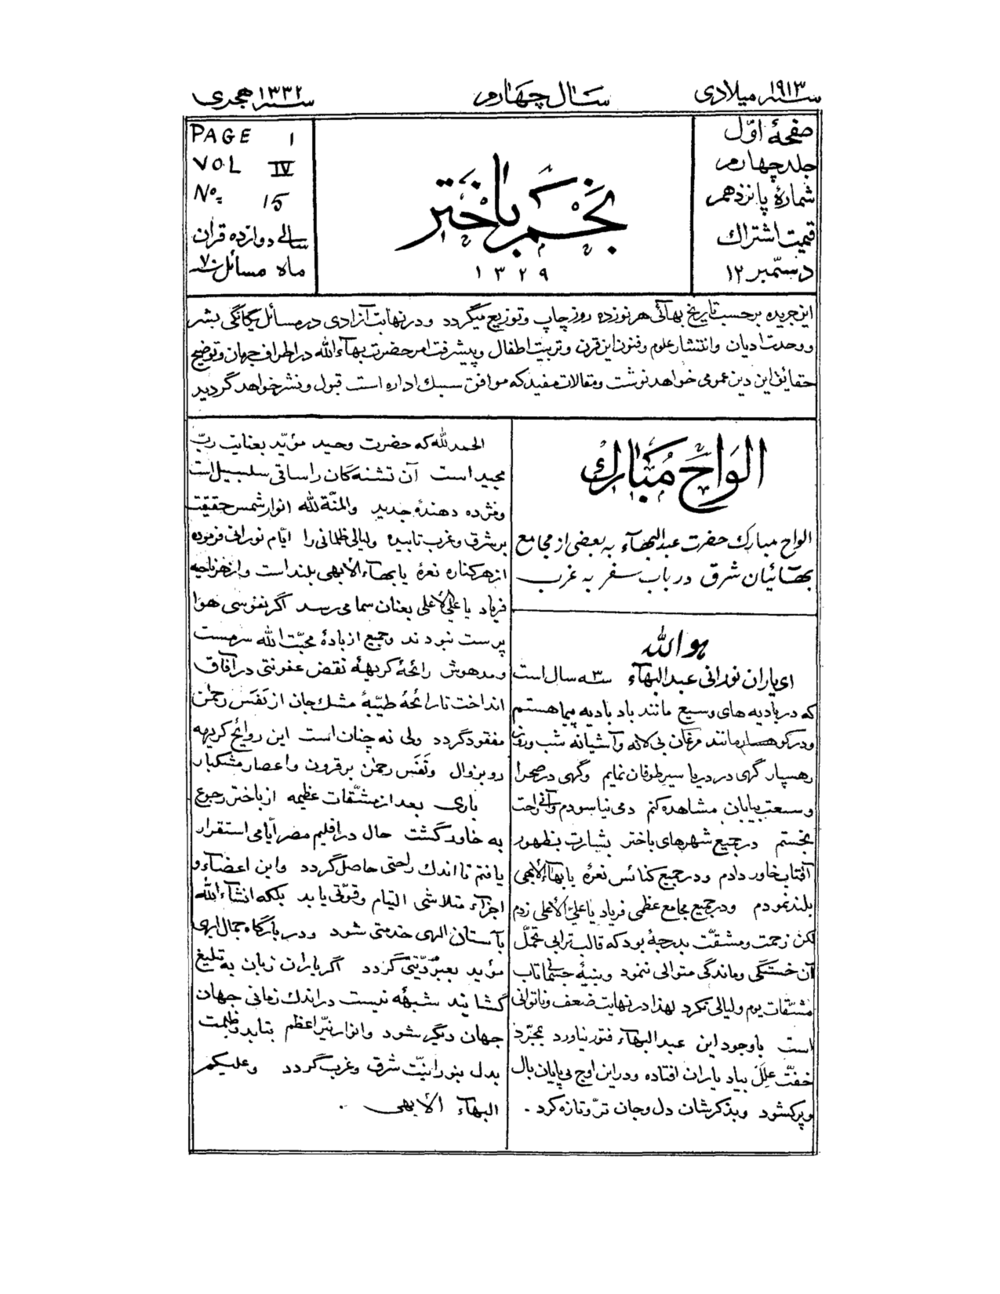 سنه ۱۹۱۳ میلادی
سال چهارم
سنه ۱۳۳۲ هجری
صفحهٔ اوّل
جلد چهارم
شمارهٔ پانزدهم
قیمت اشتراک
دسمبر ۱۲
نجم باختر
۱۳۲۹
PAGE 1
VOL IV
No. 15
سالی دوازده قران
ماه مسائل ۷۰
این جریده برحسب تاریخ بهائی هر نوزده روز چاپ و توزیع میگردد و در نهایت آزادی در مسائل یگانگی بشر
و وحدت ادیان و انتشار علوم و فنون این قرن و تربیت اطفال و پیشرفت امر حضرت بهآءالله در اطراف جهان و توضیح
حقایق این دین عمومی خواهد نوشت و مقالات مفید که موافق سبک اداره است قبول و نشر خواهد گردید
الواح مبارک
الواح مبارک حضرت عبدالبهآء به بعضی از مجامع
بهائیان شرق در باب سفر به غرب
هوالله
ای یاران نورانی عبدالبهاء سه سال است
که در بادیه های وسیع مانند باد بادیه پیما هستم
و در کوهسار مانند مرغان بی لانه و آشیانه شب و روز
رهسپار گهی در دریا سیر طوفان نمایم و گهی در صحرا
وسعت بیابان مشاهده کنم دمی نیاسودم و آنی راحت
نجستم در جمیع شهرهای باختر بشارت بظهور
آفتاب خاور دادم و در جمیع کنائس نعرهٔ یا بهآءالابهی
بلند نمودم و در جمیع مجامع عظمی فریاد یا علیّ الاعلی زدم
لکن زحمت و مشقّت بدرجهٔ بود که قالب ترابی تحمّل
آن خستگی و ماندگی متوالی ننمود و بنیهٔ جسمانی تاب
مشقّات یوم و لیالی نکرد لهذا در نهایت ضعف و ناتوانی
است با وجود این عبدالبهآء فتور نیاورد بمجرّد
خفّت علل بیاد یاران افتاده و در این اوج بی پایان بال
و پر گشود و بذکرشان دل و جان ترّ و تازه کرد .
الحمدلله که حضرت وحید مؤیّد بعنایت ربّ
مجید است آن تشنه گان را ساقی سلسبیل است
و مژده دهندهٔ جدید والمنّة لله انوار شمس حقیقت
بر شرق و غرب تابیده و لیالی ظلمانی را ایّام نورانی فرموده
از هر کناره نعرهٔ یا بهآء الابهی بلند است و از هر ناحیه
فریاد یا علیّ الاعلی بعنان سما می رسد اگر نفوسی هوا
پرست نبودند و جمیع از بادهٔ محبّت الله سرمست
و مدهوش رائحهٔ کریههٔ نقض عفونتی در آفاق
انداخت تا رائحهٔ طیّبهٔ مشک جان از نَفَس رحمن
مفقود گردد ولی نه چنان است این روایح کریهه
رو بزوال و نَفَس رحمن بر قرون و اعصار مشکبار
باری بعد از مشقّات عظیمه از باختر رجوع
به خاور گشت حال در اقلیم مصر ایّامی استقرار
یافتم تا اندک راحتی حاصل گردد و این اعضاء و
اجزآء متلاشی التیام و قوّتی یابد بلکه انشآءالله
بآستان الهی خدمتی شود و در بارگاه جمال ابهی
مؤید بعبودیّتی گردد اگر یاران زبان به تبلیغ
گشایند شبهه نیست در اندک زمانی جهان
جهان دیگر شود و انوار نیّر اعظم بتابد و ظلمت
بدل بنورانیّت شرق و غرب گردد و علیکم
البهآء الابهی .